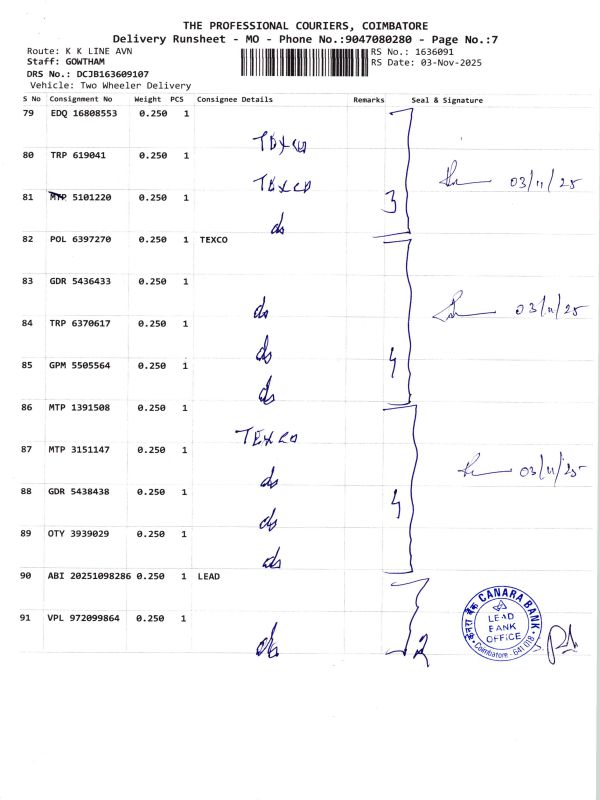 THE PROFESSIONAL COURIERS, COIMBATORE
Delivery Runsheet - MO - Phone No.:9047080280 - Page No.:7
Route: K K LINE AVN
RS No.: 1636091
Staff: GOWTHAM
RS Date: 03-Nov-2025
DRS No.: DCJB163609107
Vehicle: Two Wheeler Delivery
S No Consignment No Weight PCS Consignee Details Remarks Seal & Signature
79 EDQ 16808553 0.250 1
TEXCO
80 TRP 619041 0.250 1
TEXCO
03/11/25
81 MTP 5101220 0.250 1
3
do
82 POL 6397270 0.250 1 TEXCO
83 GDR 5436433 0.250 1
do
03/11/25
84 TRP 6370617 0.250 1
do
4
85 GPM 5505564 0.250 1
do
86 MTP 1391508 0.250 1
TEXCO
87 MTP 3151147 0.250 1
do
03/11/25
88 GDR 5438438 0.250 1
do
4
89 OTY 3939029 0.250 1
do
90 ABI 20251098286 0.250 1 LEAD
91 VPL 972099864 0.250 1
do
2
केनरा बैंक CANARA BANK
LEAD
BANK
OFFICE
Coimbatore - 641 018